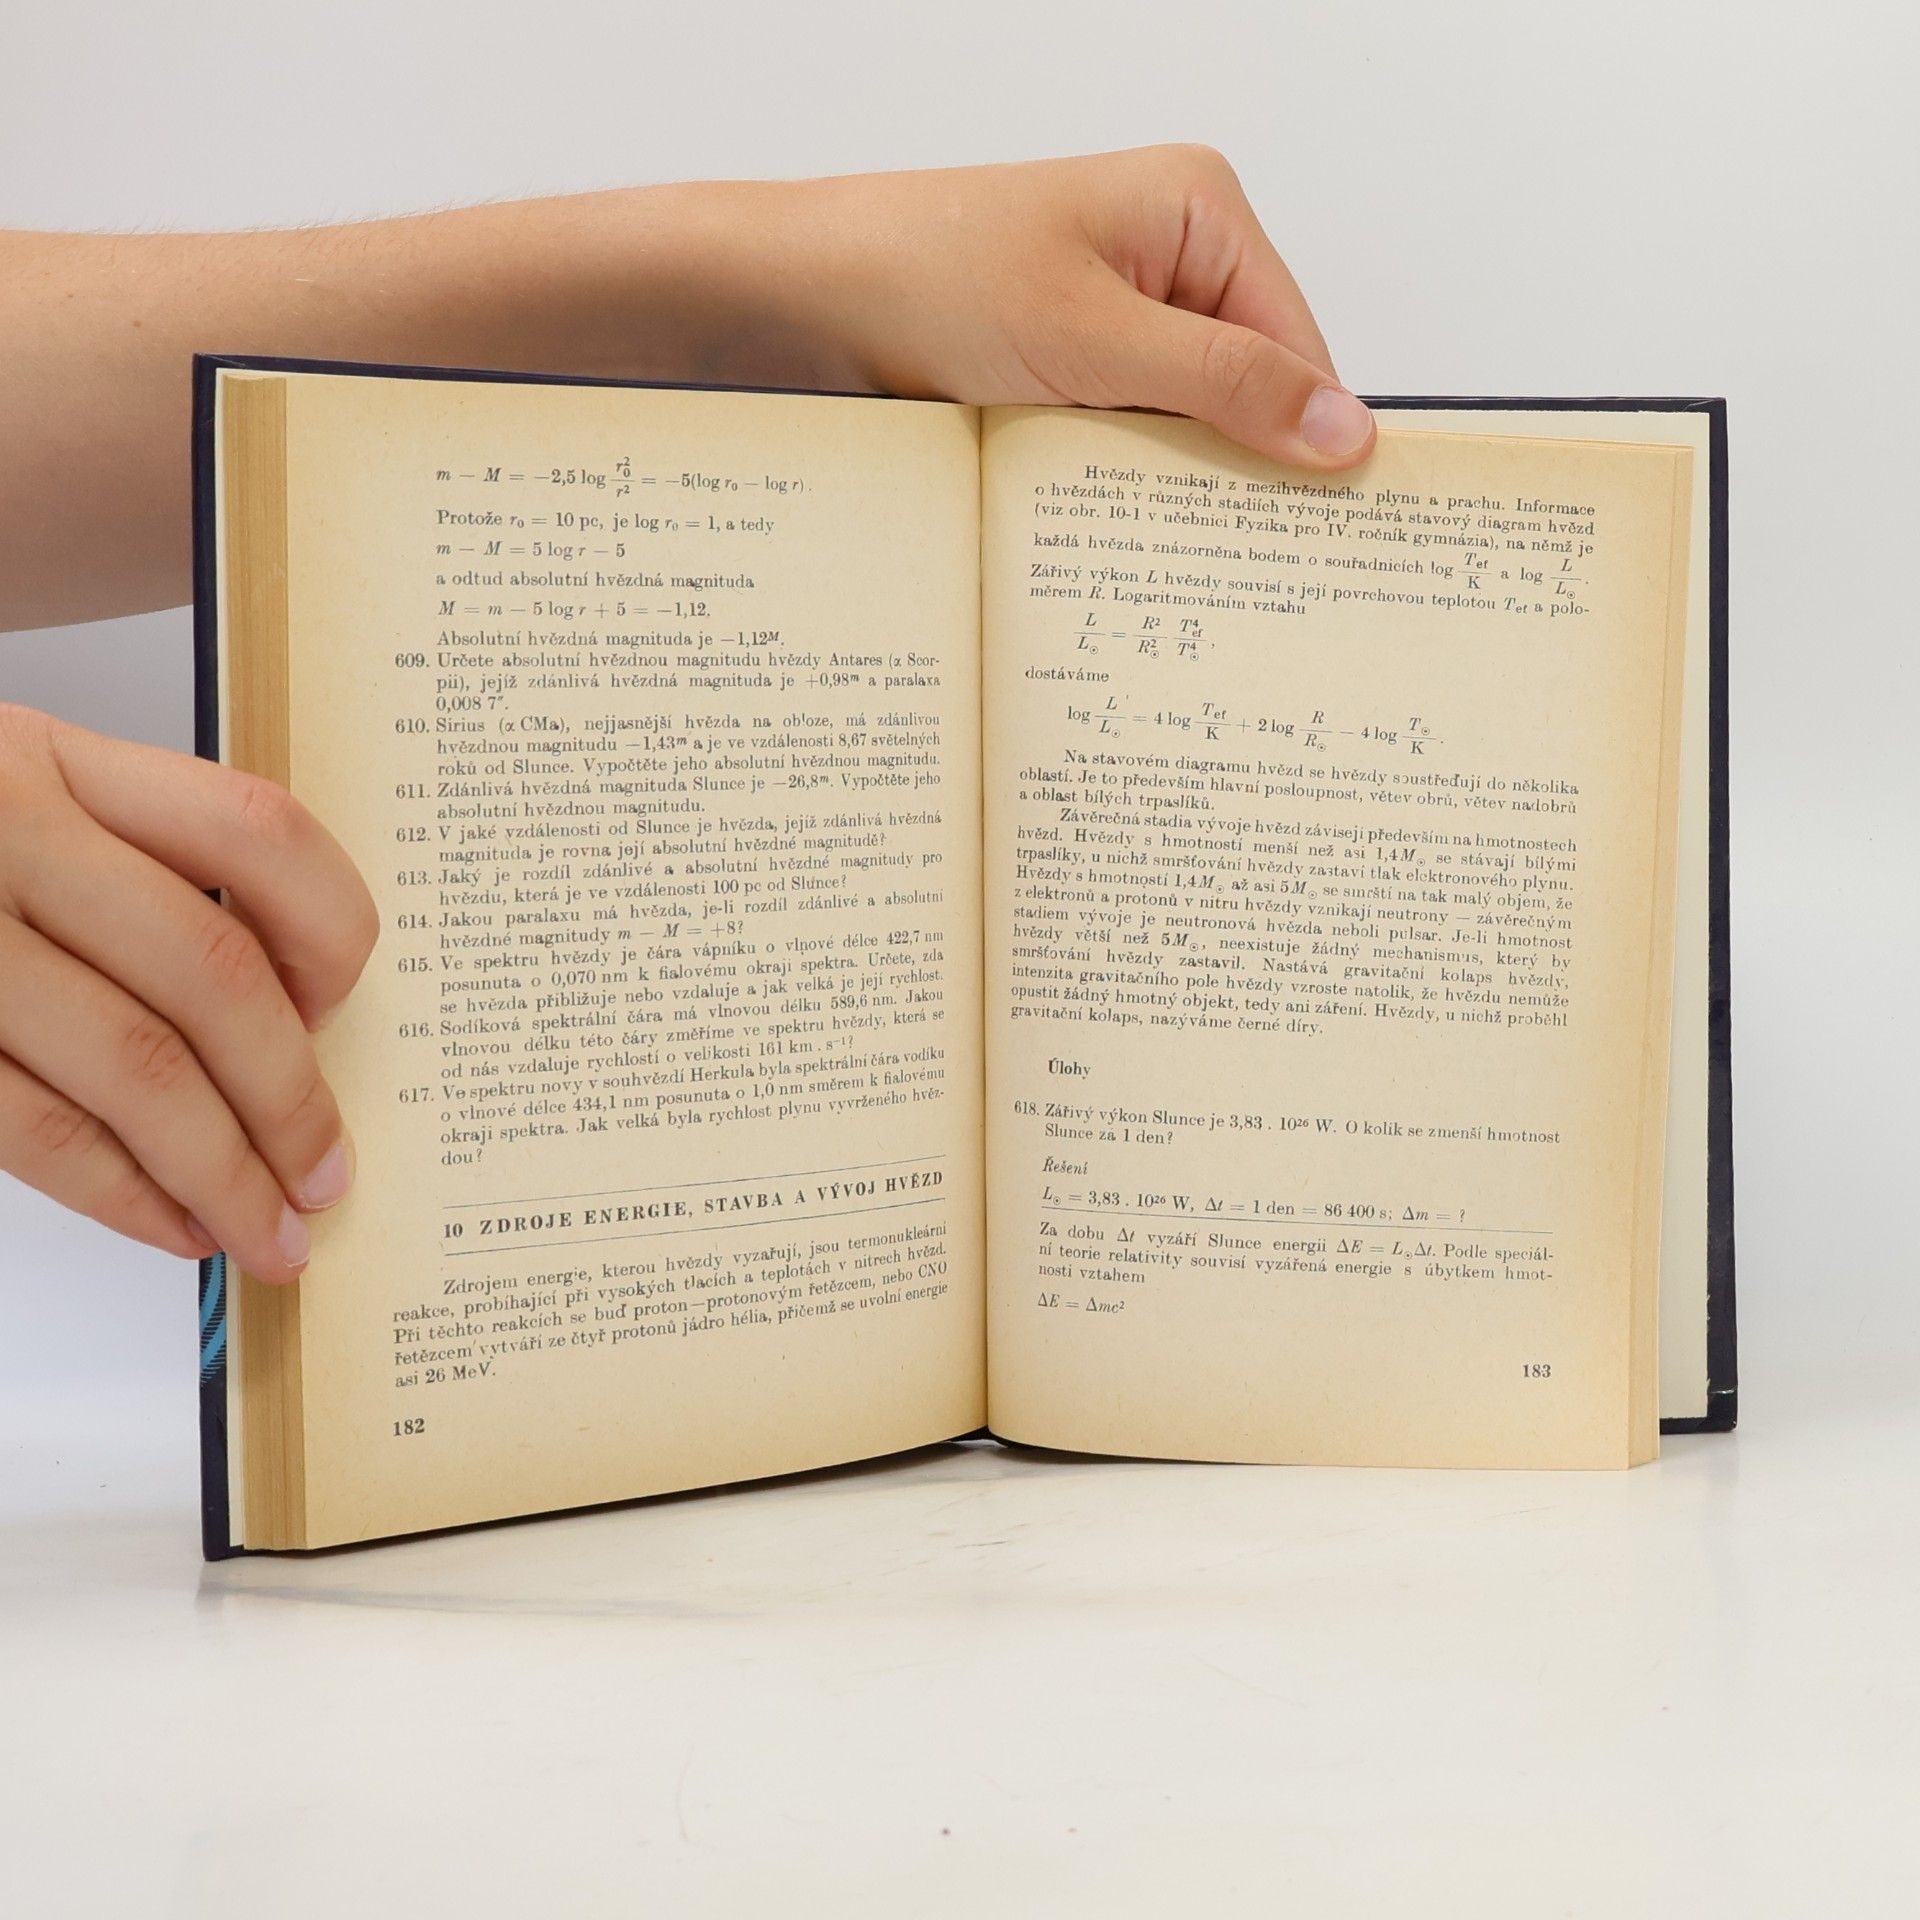 m − M = −2,5 log r₀²/r² = −5(log r₀ − log r) .
Protože r₀ = 10 pc, je log r₀ = 1, a tedy
m − M = 5 log r − 5
a odtud absolutní hvězdná magnituda
M = m − 5 log r + 5 = −1,12.
Absolutní hvězdná magnituda je −1,12ᴹ.
609. Určete absolutní hvězdnou magnitudu hvězdy Antares (α Scor-
pii), jejíž zdánlivá hvězdná magnituda je +0,98ᵐ a paralaxa
0,008 7″.
610. Sirius (α CMa), nejjasnější hvězda na obloze, má zdánlivou
hvězdnou magnitudu −1,43ᵐ a je ve vzdálenosti 8,67 světelných
roků od Slunce. Vypočtěte jeho absolutní hvězdnou magnitudu.
611. Zdánlivá hvězdná magnituda Slunce je −26,8ᵐ. Vypočtěte jeho
absolutní hvězdnou magnitudu.
612. V jaké vzdálenosti od Slunce je hvězda, jejíž zdánlivá hvězdná
magnituda je rovna její absolutní hvězdné magnitudě?
613. Jaký je rozdíl zdánlivé a absolutní hvězdné magnitudy pro
hvězdu, která je ve vzdálenosti 100 pc od Slunce?
614. Jakou paralaxu má hvězda, je-li rozdíl zdánlivé a absolutní
hvězdné magnitudy m − M = +8?
615. Ve spektru hvězdy je čára vápníku o vlnové délce 422,7 nm
posunuta o 0,070 nm k fialovému okraji spektra. Určete, zda
se hvězda přibližuje nebo vzdaluje a jak velká je její rychlost.
616. Sodíková spektrální čára má vlnovou délku 589,6 nm. Jakou
vlnovou délku této čáry změříme ve spektru hvězdy, která se
od nás vzdaluje rychlostí o velikosti 161 km . s⁻¹?
617. Ve spektru novy v souhvězdí Herkula byla spektrální čára vodíku
o vlnové délce 434,1 nm posunuta o 1,0 nm směrem k fialovému
okraji spektra. Jak velká byla rychlost plynu vyvrženého hvěz-
dou?
10 ZDROJE ENERGIE, STAVBA A VÝVOJ HVĚZD
Zdrojem energie, kterou hvězdy vyzařují, jsou termonukleární
reakce, probíhající při vysokých tlacích a teplotách v nitrech hvězd.
Při těchto reakcích se buď proton—protonovým řetězcem, nebo CNO
řetězcem vytváří ze čtyř protonů jádro hélia, přičemž se uvolní energie
asi 26 MeV.
182
Hvězdy vznikají z mezihvězdného plynu a prachu. Informace
o hvězdách v různých stadiích vývoje podává stavový diagram hvězd
(viz obr. 10-1 v učebnici Fyzika pro IV. ročník gymnázia), na němž je
každá hvězda znázorněna bodem o souřadnicích log Tef/K a log L/L☉.
Zářivý výkon L hvězdy souvisí s její povrchovou teplotou Tef a polo-
měrem R. Logaritmováním vztahu
L/L☉ = R²/R☉² Tef⁴/T☉⁴ ,
dostáváme
log L/L☉ = 4 log Tef/K + 2 log R/R☉ − 4 log T☉/K .
Na stavovém diagramu hvězd se hvězdy soustřeďují do několika
oblastí. Je to především hlavní posloupnost, větev obrů, větev nadobrů
a oblast bílých trpaslíků.
Závěrečná stadia vývoje hvězd závisejí především na hmotnostech
hvězd. Hvězdy s hmotností menší než asi 1,4M☉ se stávají bílými
trpaslíky, u nichž smršťování hvězdy zastaví tlak elektronového plynu.
Hvězdy s hmotností 1,4M☉ až asi 5M☉ se smrští na tak malý objem, že
z elektronů a protonů v nitru hvězdy vznikají neutrony — závěrečným
stadiem vývoje je neutronová hvězda neboli pulsar. Je-li hmotnost
hvězdy větší než 5M☉, neexistuje žádný mechanismus, který by
smršťování hvězdy zastavil. Nastává gravitační kolaps hvězdy,
intenzita gravitačního pole hvězdy vzroste natolik, že hvězdu nemůže
opustit žádný hmotný objekt, tedy ani záření. Hvězdy, u nichž proběhl
gravitační kolaps, nazýváme černé díry.
Úlohy
618. Zářivý výkon Slunce je 3,83 . 10²⁶ W. O kolik se zmenší hmotnost
Slunce za 1 den?
Řešení
L☉ = 3,83 . 10²⁶ W, Δt = 1 den = 86 400 s; Δm = ?
Za dobu Δt vyzáří Slunce energii ΔE = L☉Δt. Podle speciál-
ní teorie relativity souvisí vyzářená energie s úbytkem hmot-
nosti vztahem
ΔE = Δmc²
183